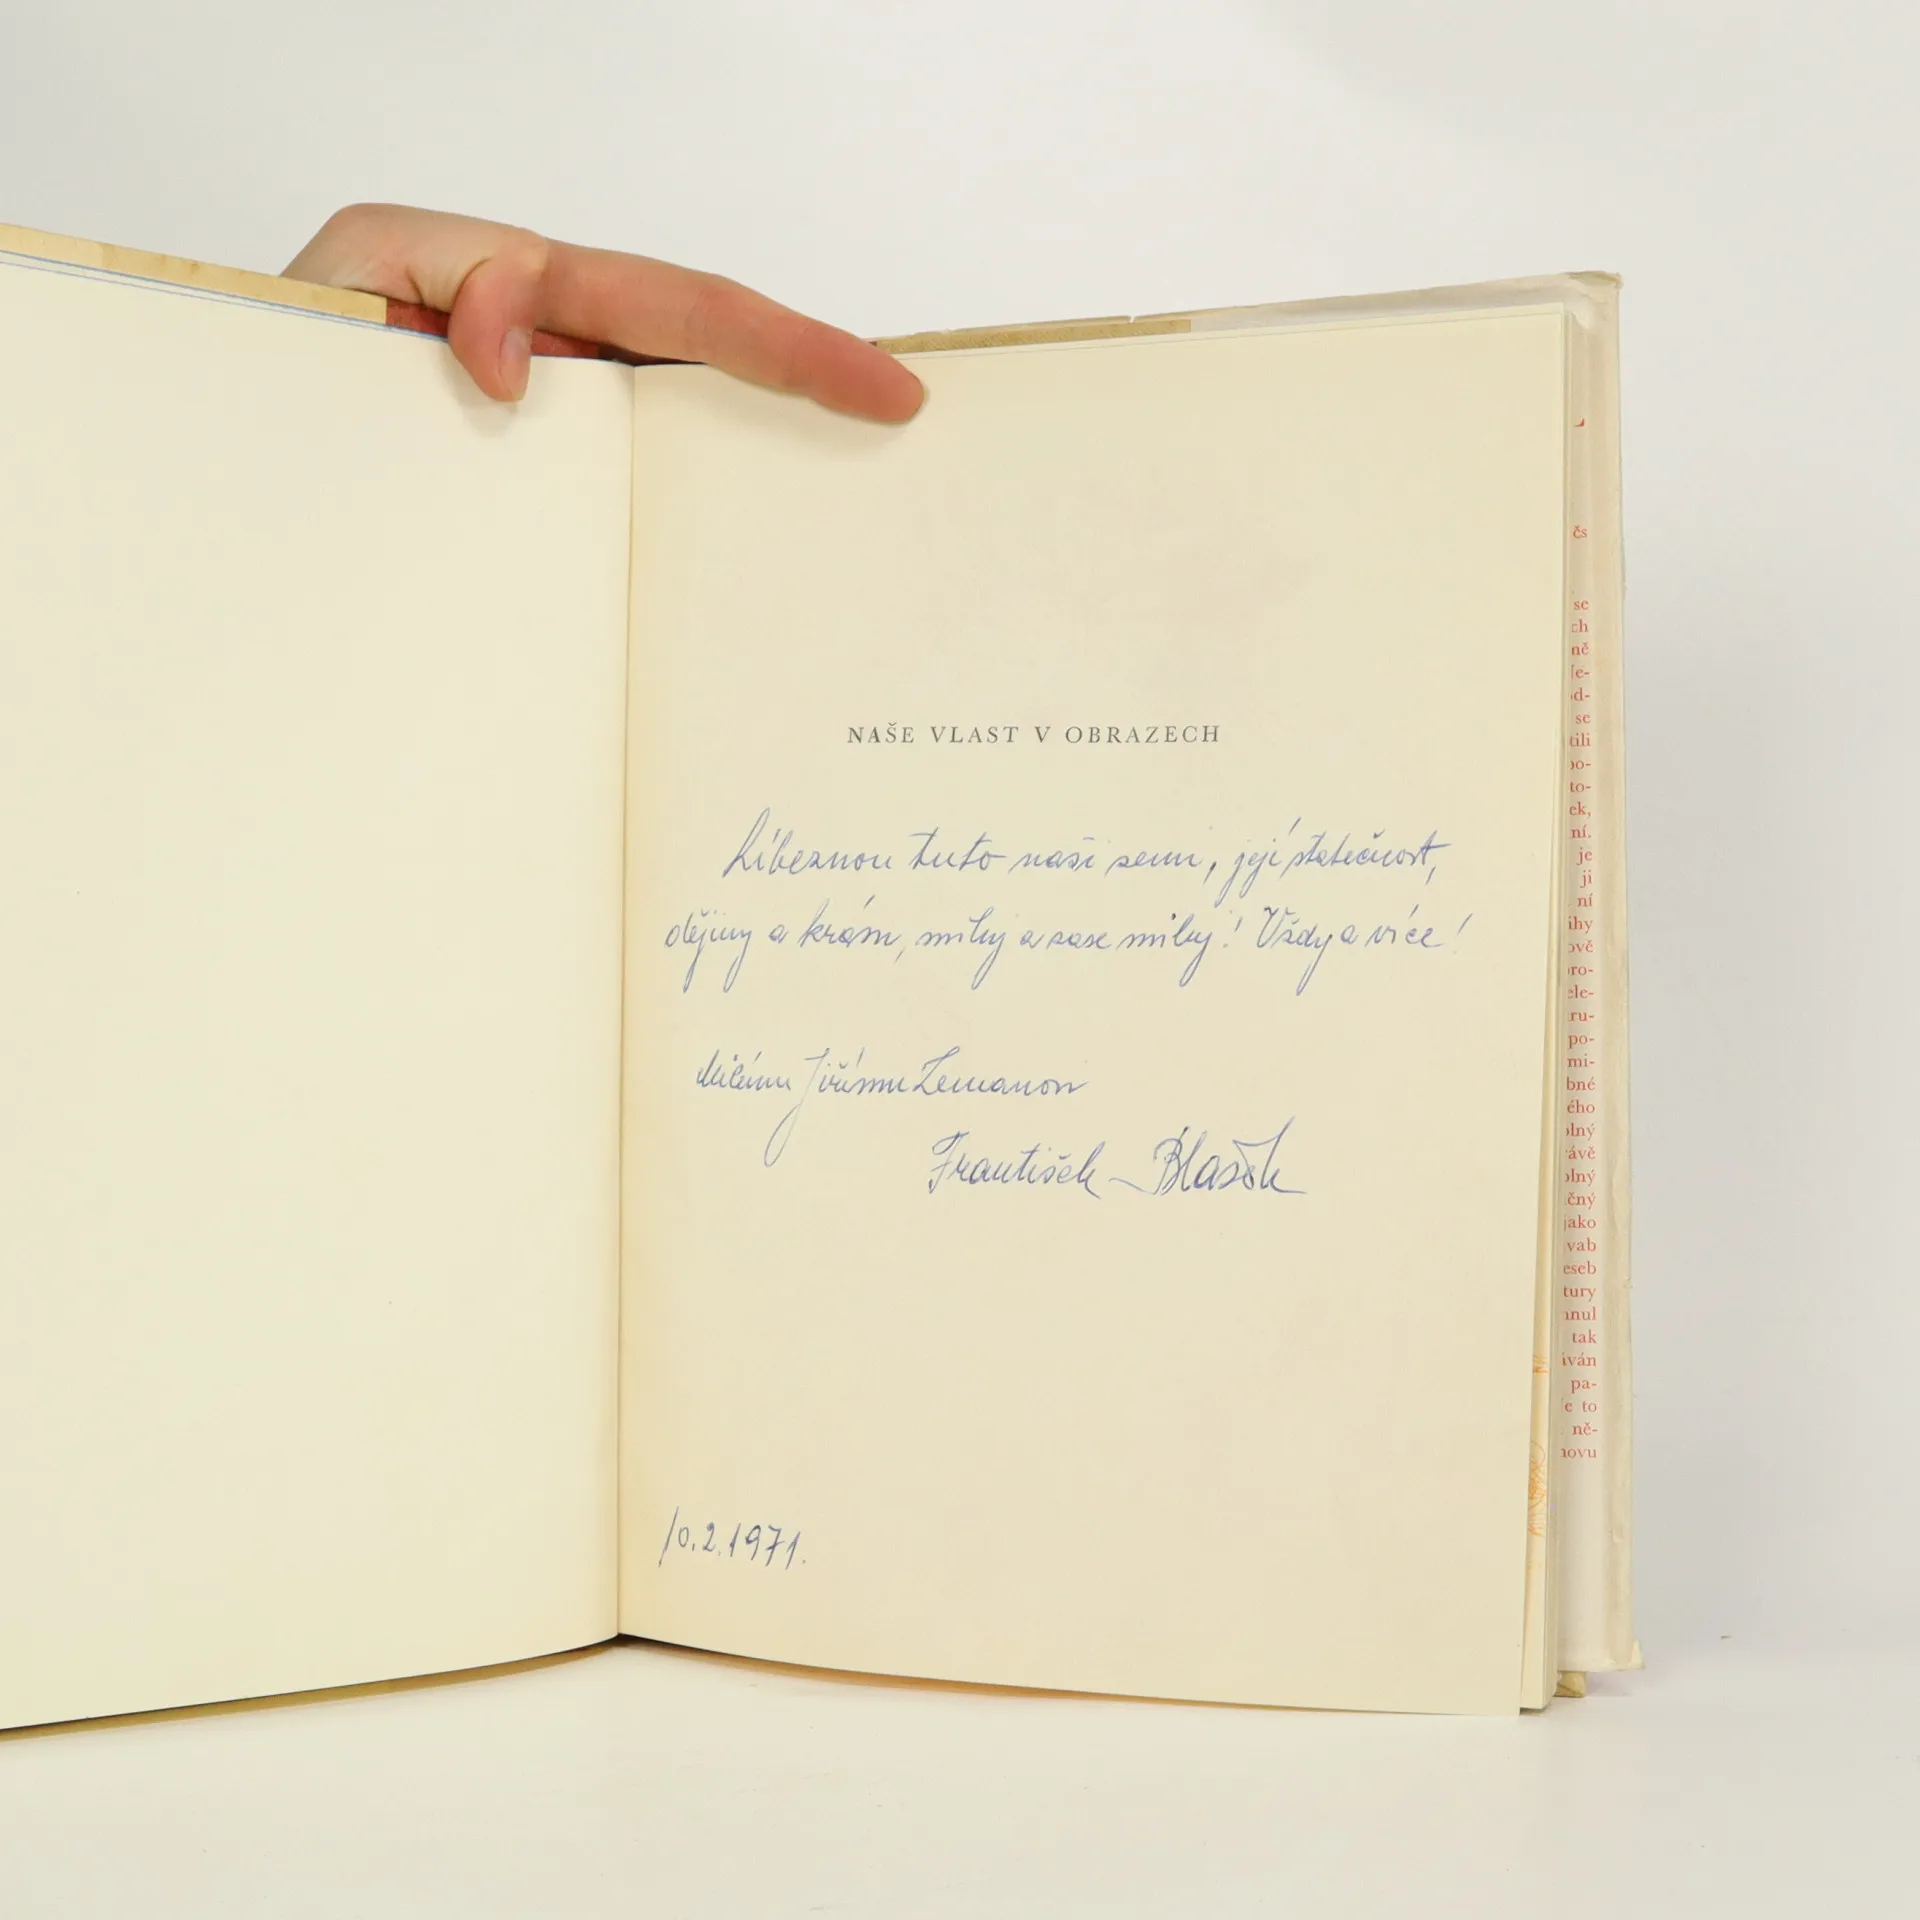 NAŠE VLAST V OBRAZECH
Líbeznou tuto naši zemi, její statečnost,
dějiny a krásu, miluj a zase miluj! Vždy a více!
Milému Jiřímu Zemanovi
František Blažek
10.2.1971.
čs
se
ch
ně
se
tili
to-
ek,
ní.
je
ji
ní
ihy
ově
ro-
ele-
ru-
po-
mi-
bné
ého
plný
ávě
plný
čný
jako
vab
eseb
tury
nnul
tak
áván
pa-
je to
ně-
novu